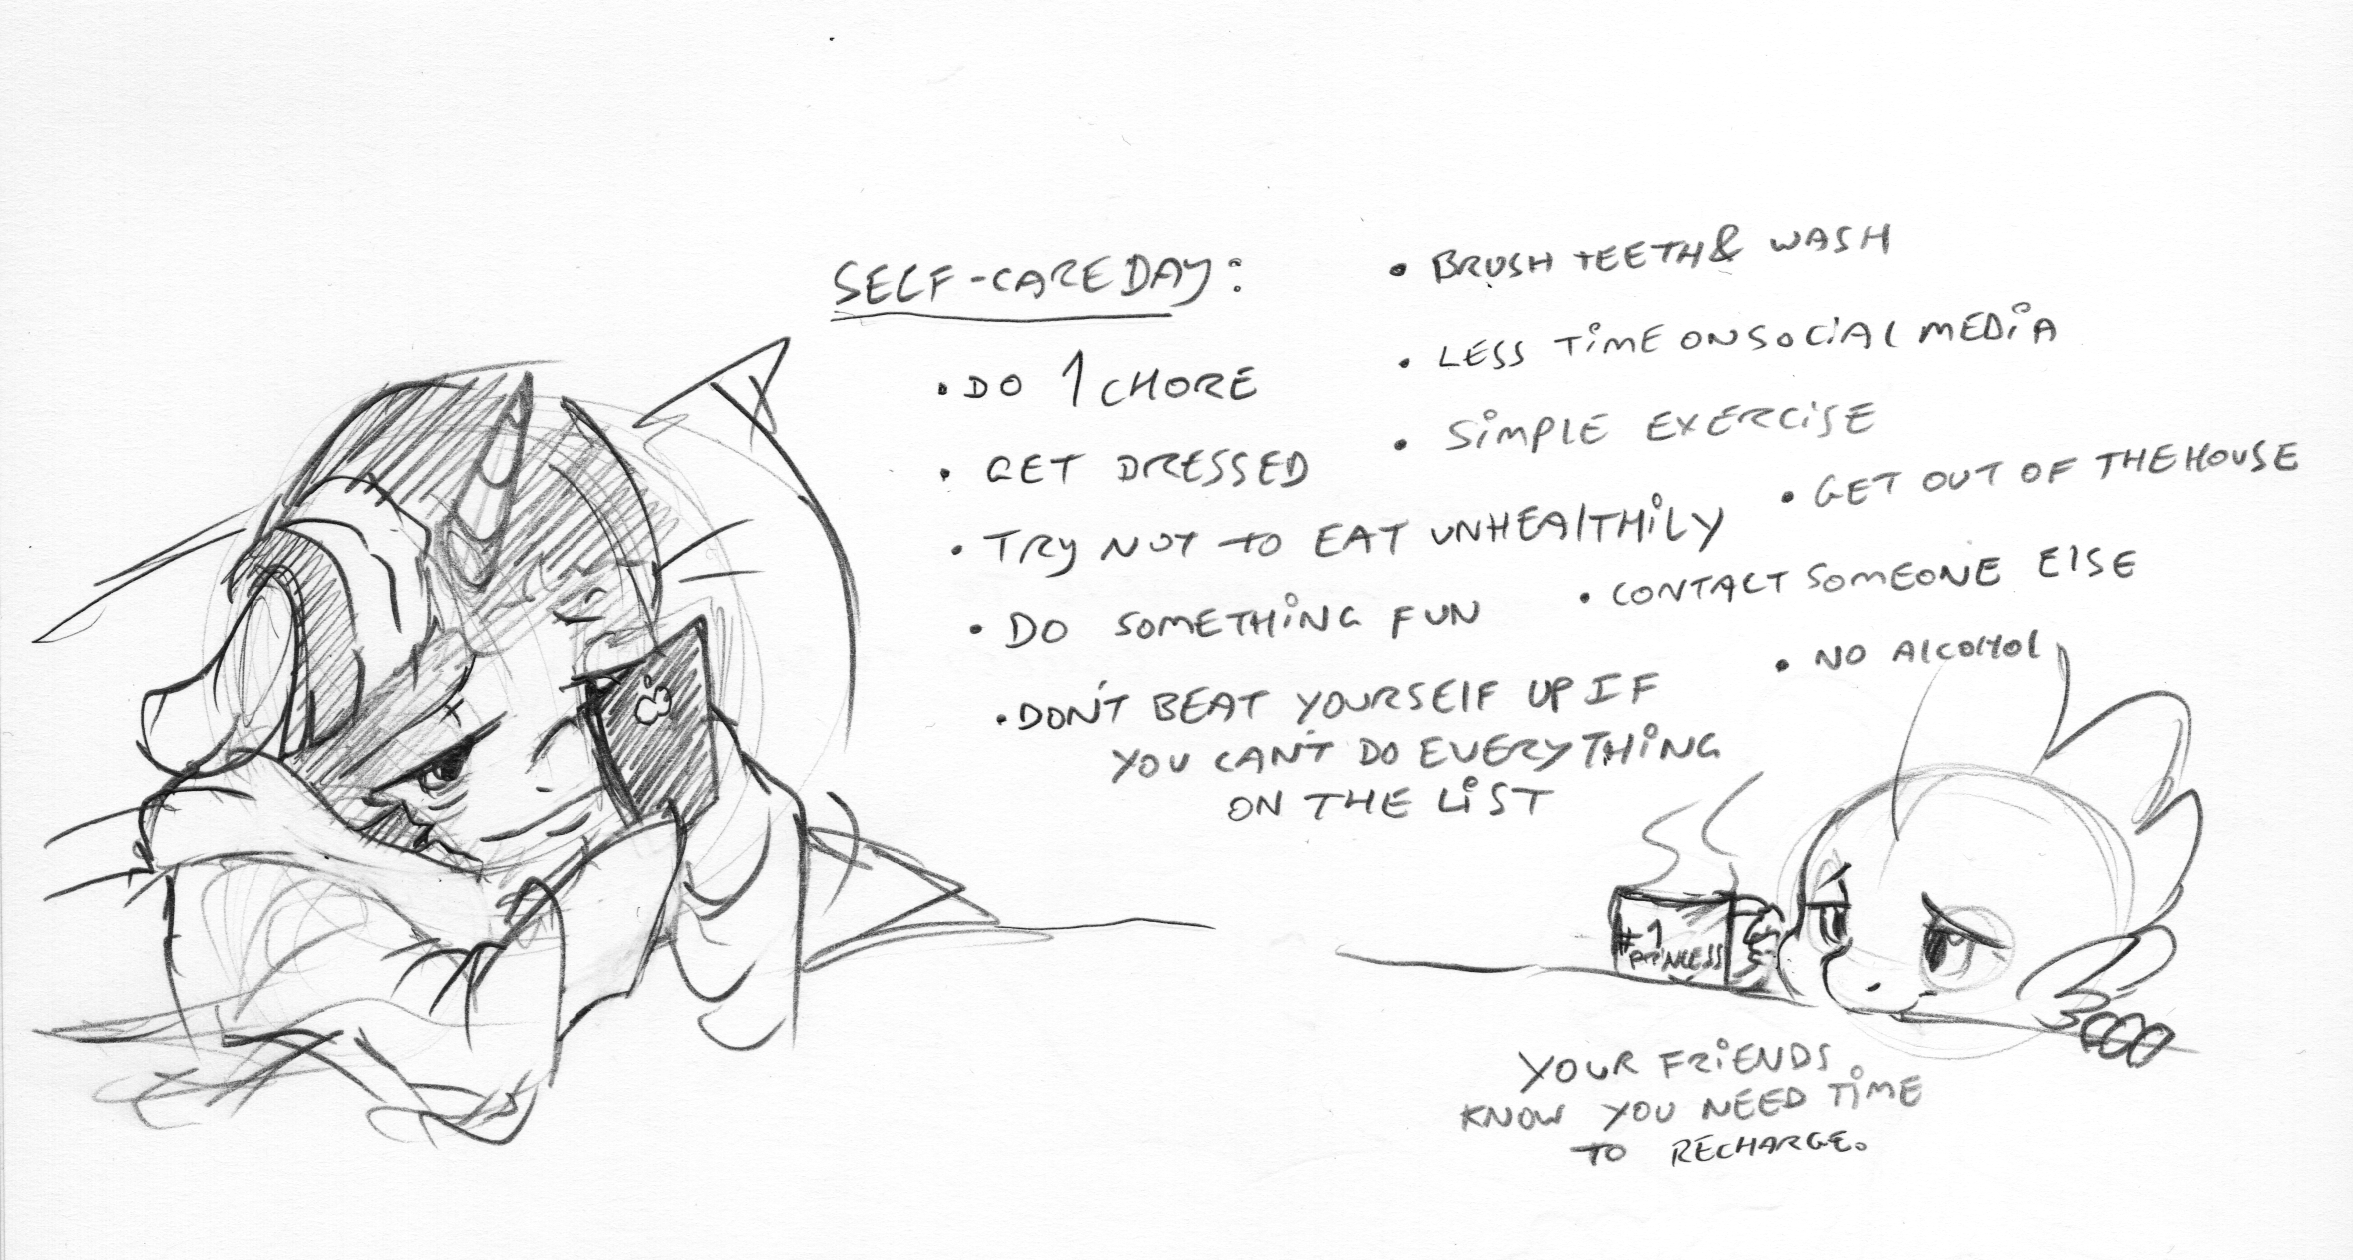 SELF-CARE DAY:
• DO 1 CHORE
• GET DRESSED
• TRY NOT TO EAT UNHEALTHILY
• DO SOMETHING FUN
• DON'T BEAT YOURSELF UP IF
YOU CAN'T DO EVERYTHING
ON THE LIST
• BRUSH TEETH & WASH
• LESS TIME ON SOCIAL MEDIA
• SIMPLE EXERCISE
• GET OUT OF THE HOUSE
• CONTACT SOMEONE ELSE
• NO ALCOHOL
#1
PRINCESS
YOUR FRIENDS
KNOW YOU NEED TIME
TO RECHARGE.